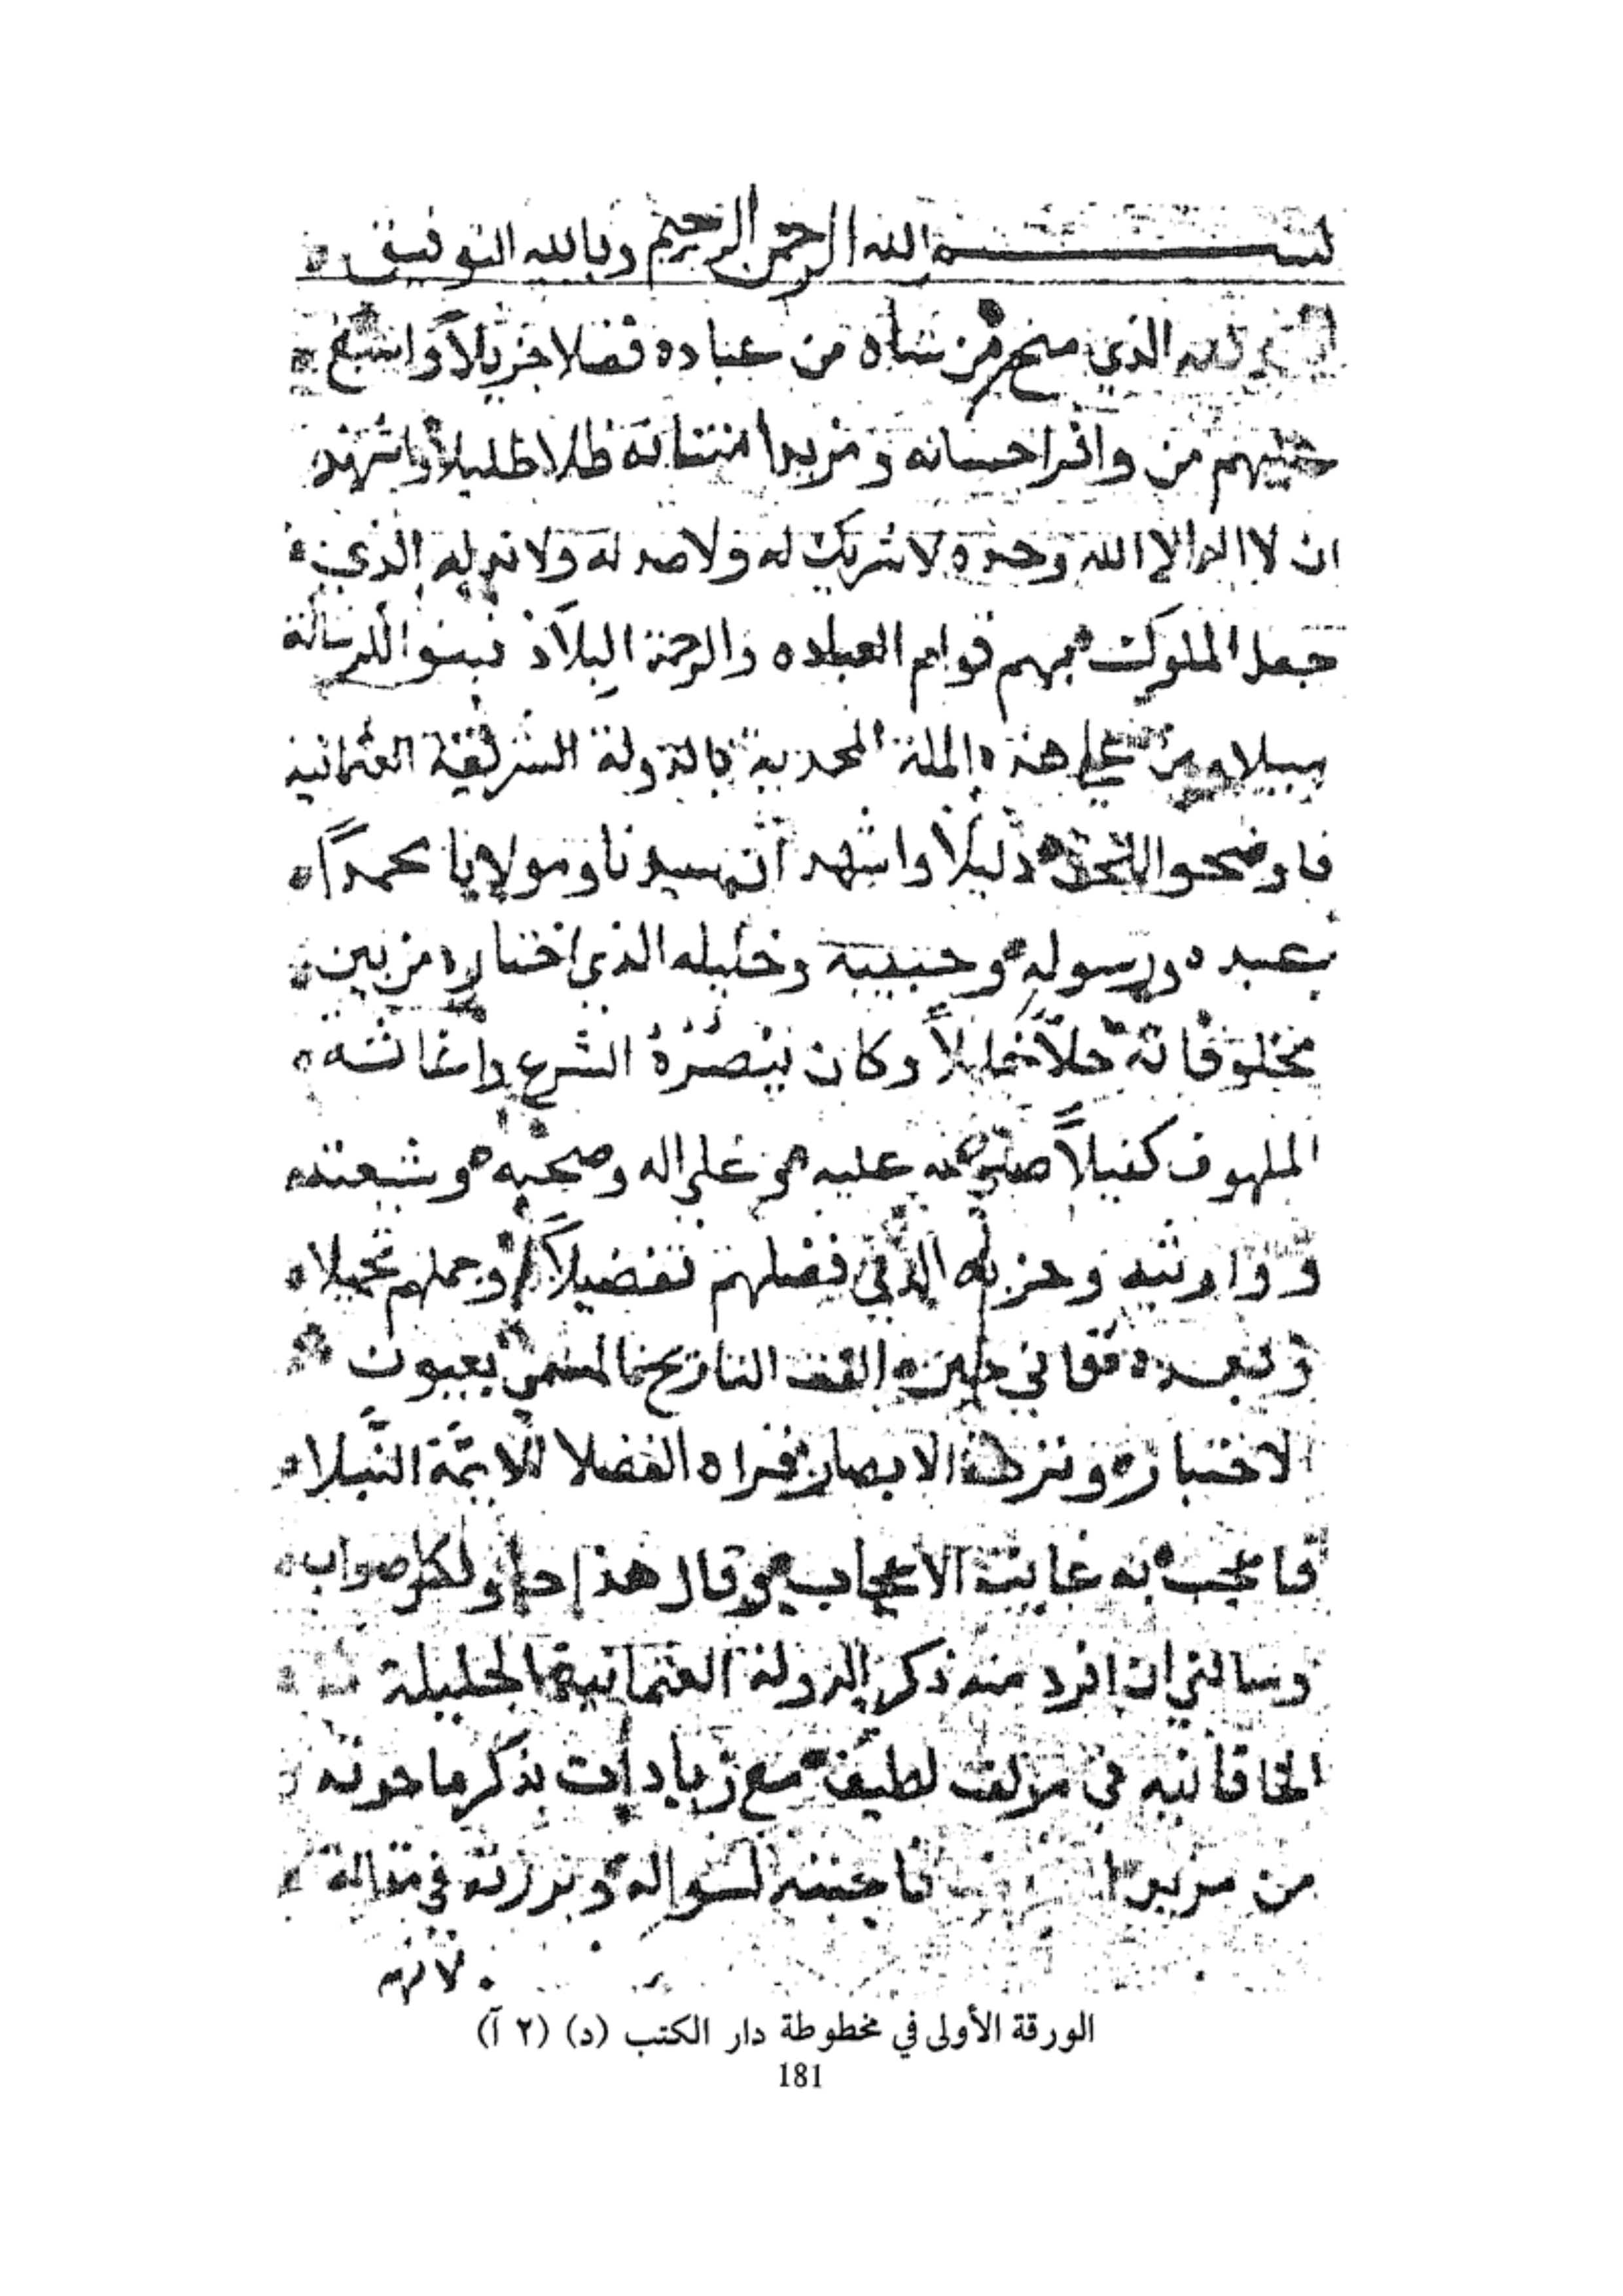 بسم الله الرحمن الرحيم وبالله التوفيق
الحمد لله الذي منح من شاء من عباده فضلا جزيلاً واسبغ
عليهم من وافر احسانه ومزيد امتنانه ظلا ظليلاً واشهد
ان لا اله الا الله وحده لا شريك له ولا ضد له ولا ند له الذي
جعل الملوك بهم قوام العباد والرحمة البلاد فبينوا للرسالة
سبيلا ومن على هذه الملة المحمدية بالدولة الشريفة العثمانية
فاوضحوا دليلاً واشهد ان سيدنا ومولانا محمداً
عبده ورسوله وحبيبه وخليله الذي اختاره من بين
مخلوقاته خلاً خليلاً وكان بنصرة الشرع واغاثة
الملهوف كفيلاً صلى الله عليه وعلى اله وصحبه وشيعته
ووارثيه وحزبه الذي فضلهم تفضيلاً وجملهم تجميلا
وبعد فقد اني حين الفت التاريخ المسمى بعيون
الاخبار ونزهة الابصار فقراه الفضلا الائمة النبلا
فاعجب به غاية الاعجاب وقال هذا حاو لكل صواب
وسالني ان افرد منه ذكر الدولة العثمانية الجليلة
الخاقانيه في مولف لطيف مع زيادات بذكر ما حوته
من مزيد فاجبته لسواله وبرزته في مقالة
لانهم
الورقة الأولى في مخطوطة دار الكتب (د) (٢ آ)
181